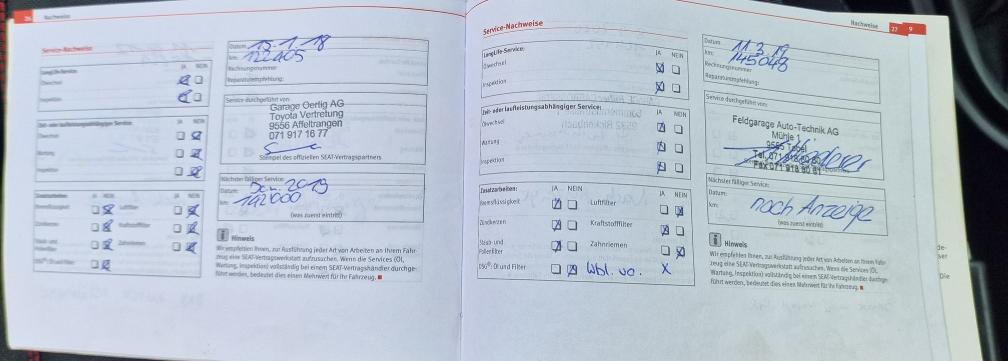 26 Nachweise
Service-Nachweise
LongLife-Service: JA NEIN
Ölwechsel
Inspektion
Zeit- oder laufleistungsabhängiger Service: JA NEIN
Ölwechsel
Wartung
Inspektion
Zusatzarbeiten: JA NEIN JA NEIN
Bremsflüssigkeit Luftfilter
Zündkerzen Kraftstofffilter
Staub- und Pollenfilter Zahnriemen
DSG®: Öl und Filter
Datum: 15.1.18
km: 122405
Rechnungsnummer
Reparaturempfehlung:
Service durchgeführt von:
Garage Oertig AG
Toyota Vertretung
9556 Affeltrangen
071 917 16 77
Stempel des offiziellen SEAT-Vertragspartners
Nächster fälliger Service:
Datum: Jan. 2019
km:
(was zuerst eintritt)
Hinweis
Wir empfehlen Ihnen, zur Ausführung jeder Art von Arbeiten an Ihrem Fahr-
zeug eine SEAT-Vertragswerkstatt aufzusuchen. Wenn die Services (Öl,
Wartung, Inspektion) vollständig bei einem SEAT-Vertragshändler durchge-
führt werden, bedeutet dies einen Mehrwert für Ihr Fahrzeug.
Nachweise 27 9
Service-Nachweise
LongLife-Service: JA NEIN
Ölwechsel
Inspektion
Zeit- oder laufleistungsabhängiger Service: JA NEIN
Ölwechsel
Wartung
Inspektion
Zusatzarbeiten: JA NEIN JA NEIN
Bremsflüssigkeit Luftfilter
Zündkerzen Kraftstofffilter
Staub- und Pollenfilter Zahnriemen
DSG®: Öl und Filter Wbl. vo. X
Datum: 11.3.19
km: 145048
Rechnungsnummer
Reparaturempfehlung:
Service durchgeführt von:
Feldgarage Auto-Technik AG
Mühle 1
9555 Tobel
Tel. 071 918 60 60
Fax 071 918 60 61
Nächster fälliger Service:
Datum:
km: noch Anzeige
(was zuerst eintritt)
Hinweis
Wir empfehlen Ihnen, zur Ausführung jeder Art von Arbeiten an Ihrem Fahr-
zeug eine SEAT-Vertragswerkstatt aufzusuchen. Wenn die Services (Öl,
Wartung, Inspektion) vollständig bei einem SEAT-Vertragshändler durchge-
führt werden, bedeutet dies einen Mehrwert für Ihr Fahrzeug.